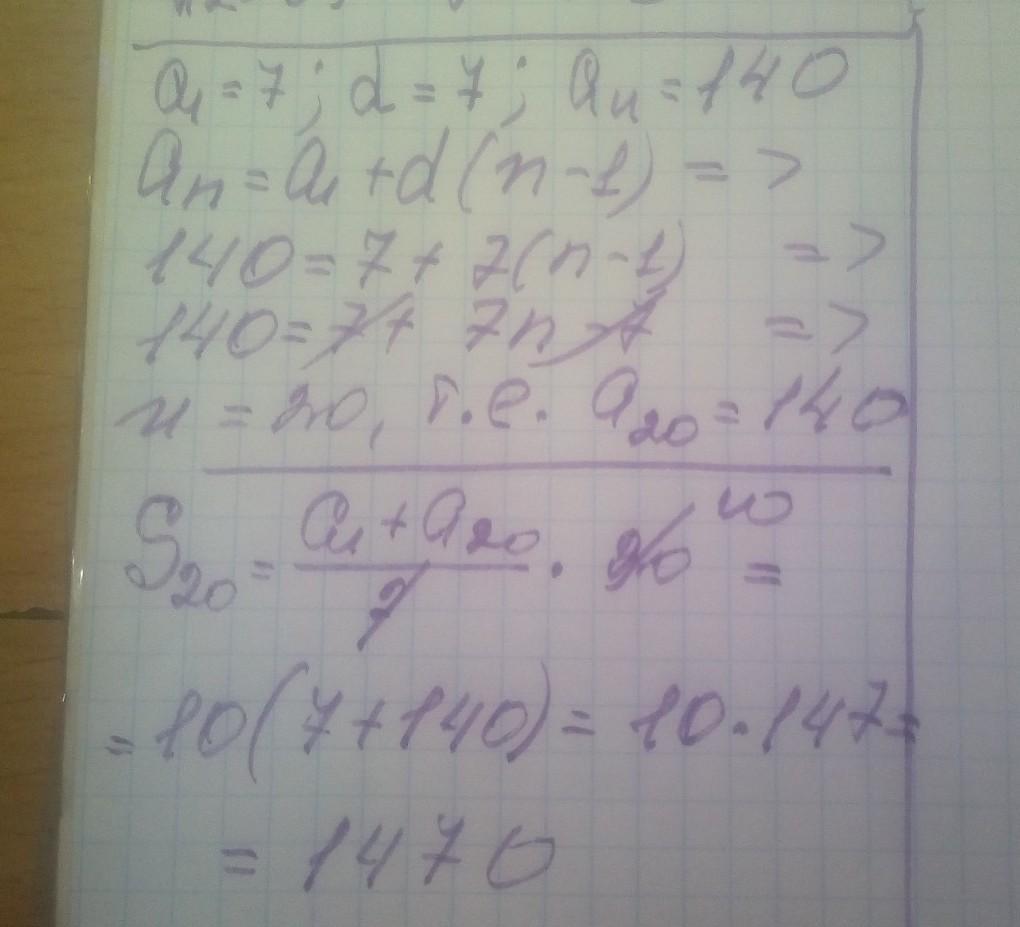 a₁ = 7; d = 7; aₙ = 140
aₙ = a₁ + d(n-1) =>
140 = 7 + 7(n-1) =>
140 = 7 + 7n - 7 =>
n = 20, т.е. a₂₀ = 140
S₂₀ = (a₁ + a₂₀)/2 · 20 10 =
= 10(7+140) = 10·147 =
= 1470